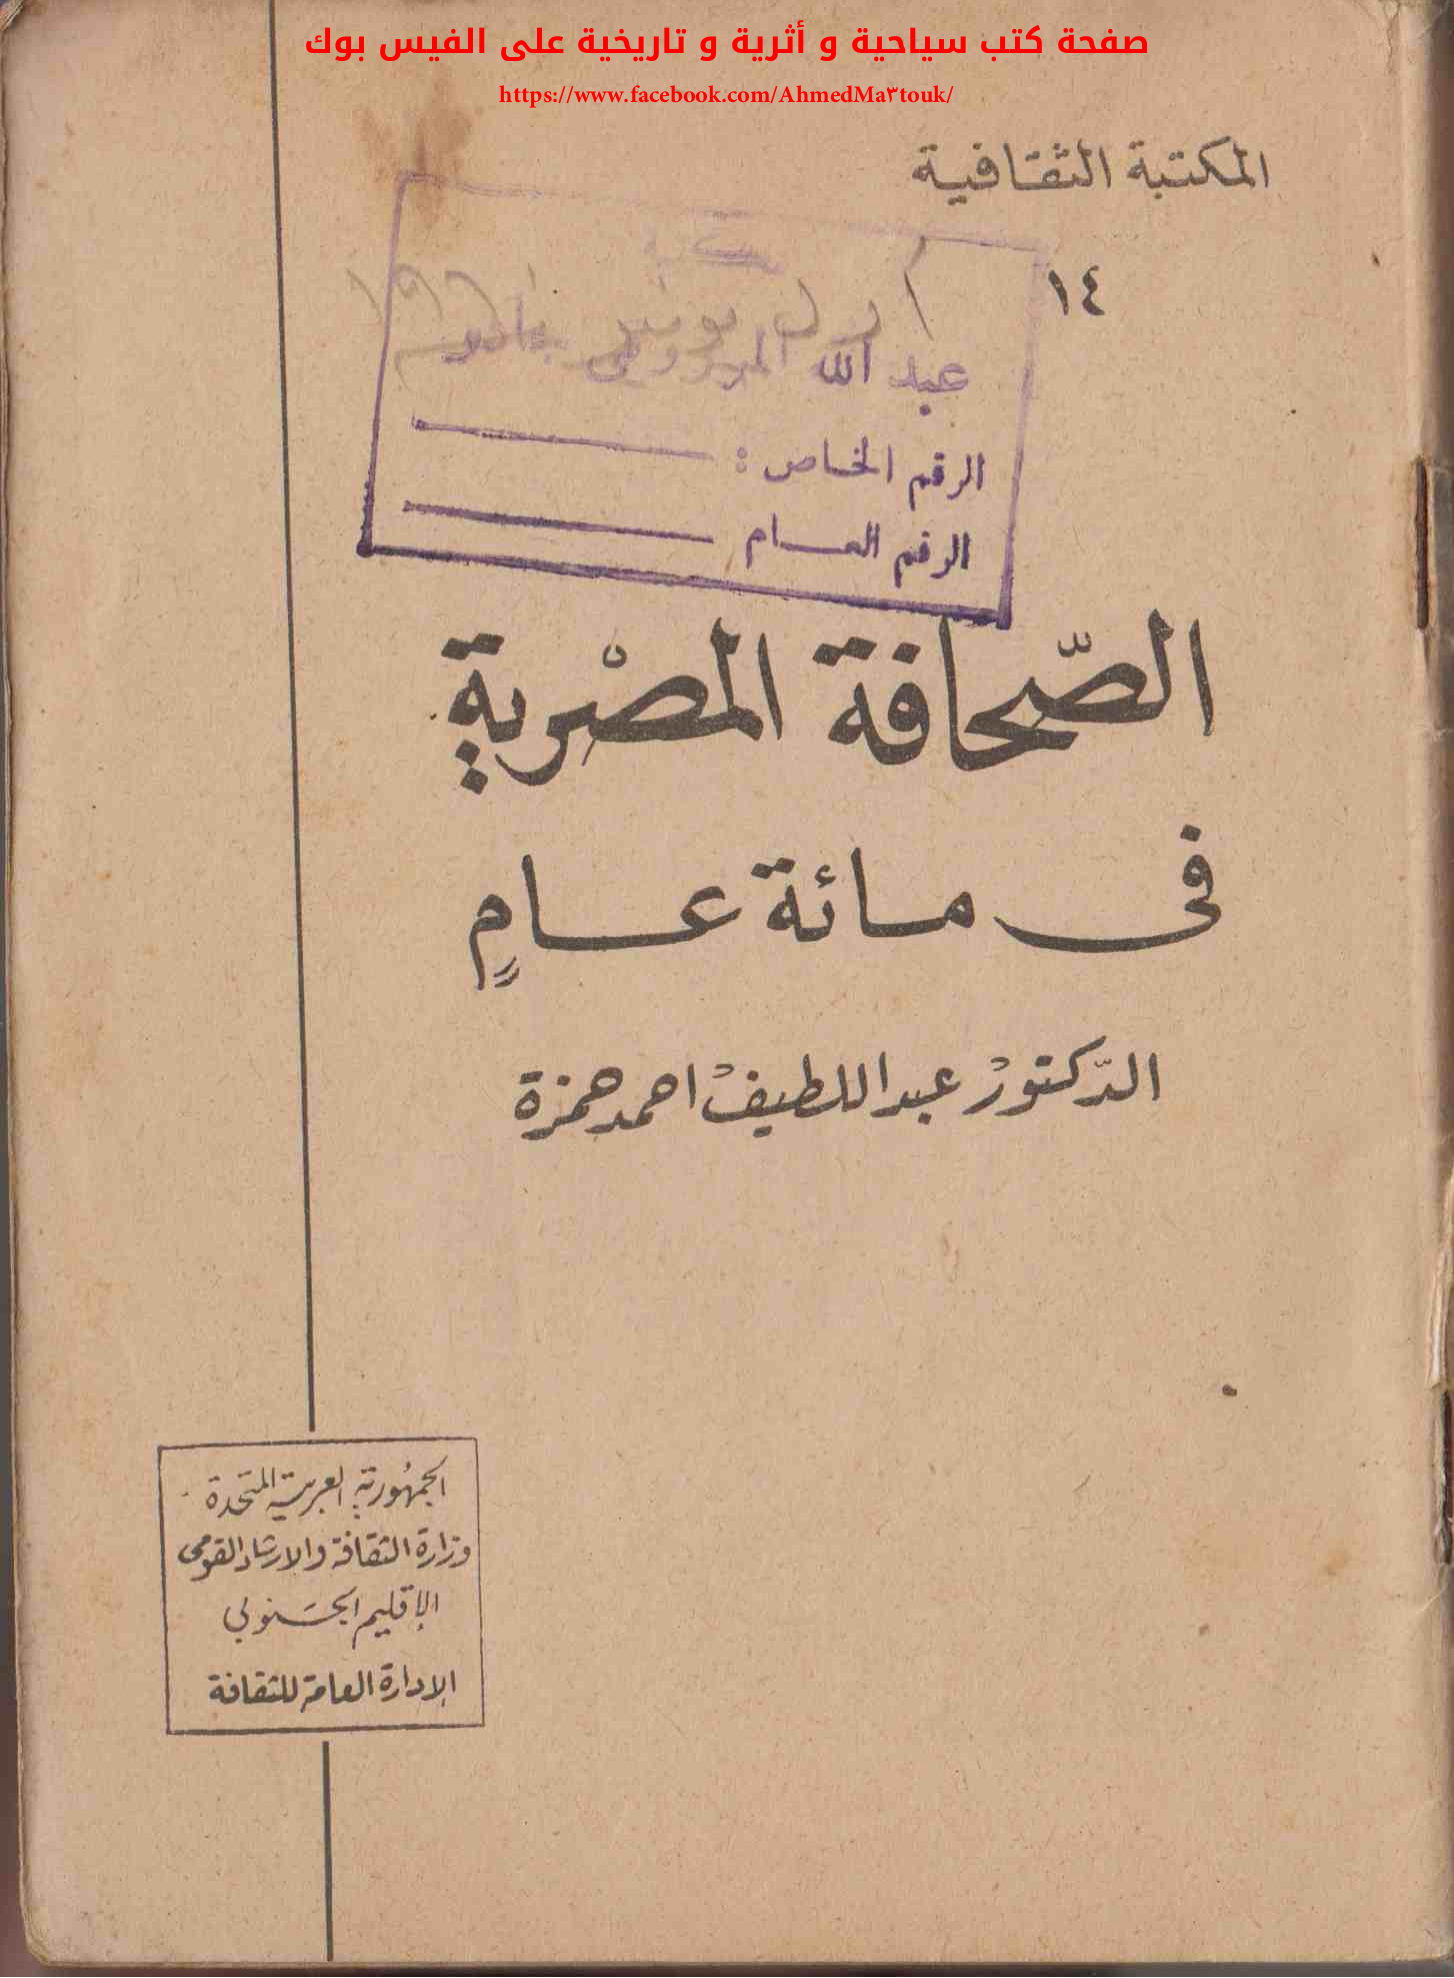 صفحة كتب سياحية و أثرية و تاريخية على الفيس بوك
https://www.facebook.com/AhmedMa٣touk/
المكتبة الثقافية
١٤
عبد الله
الرقم الخاص :
الرقم العام
الصّحافة المصْرية
فى مائة عامٍ
الدّكتورْ عبد اللطيفْ احمد حمزة
الجمهُورية العربية المتحدة
وزارة الثقافة والارشاد القومى
الإقليم الجَنوبي
الإدارة العامة للثقافة